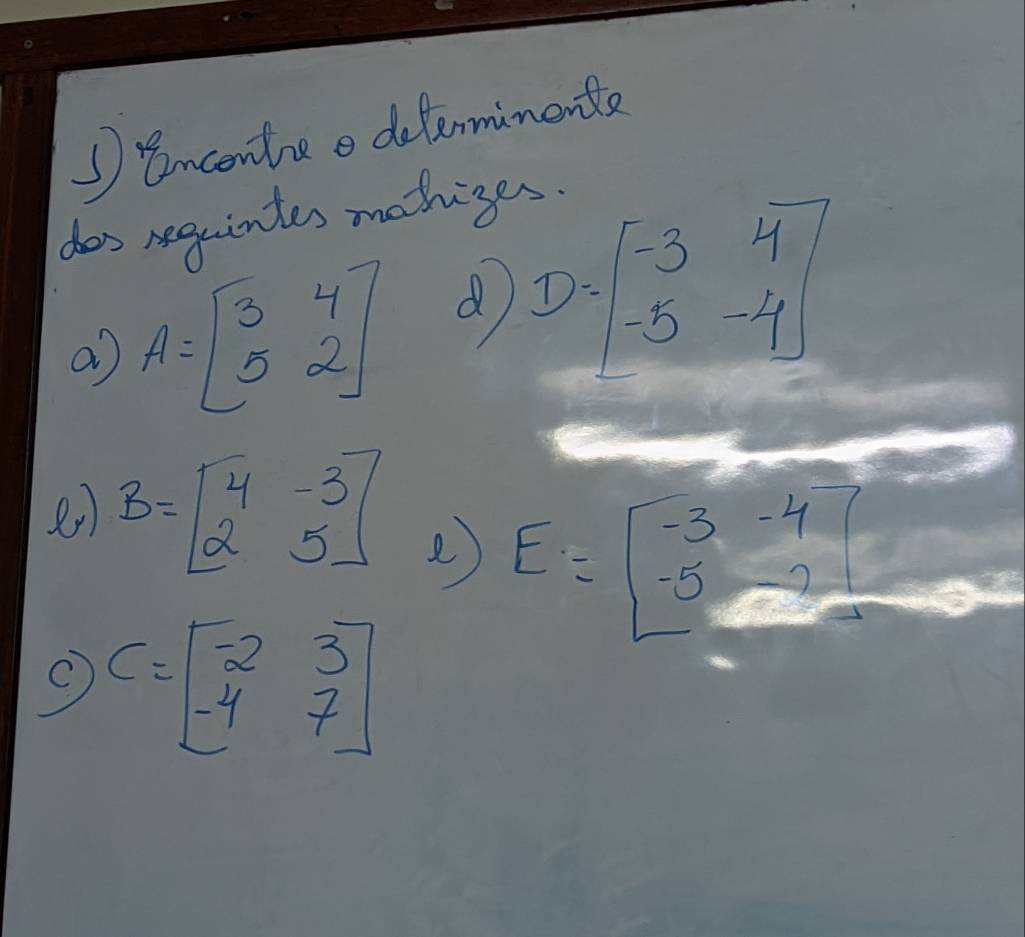 1) Encontre o determinante
dos seguintes matrizes.
a) A = [3 4
5 2]
d) D = [-3 4
-5 -4]
b) B = [4 -3
2 5]
e) E = [-3 -4
-5 -2]
c) C = [-2 3
-4 7]